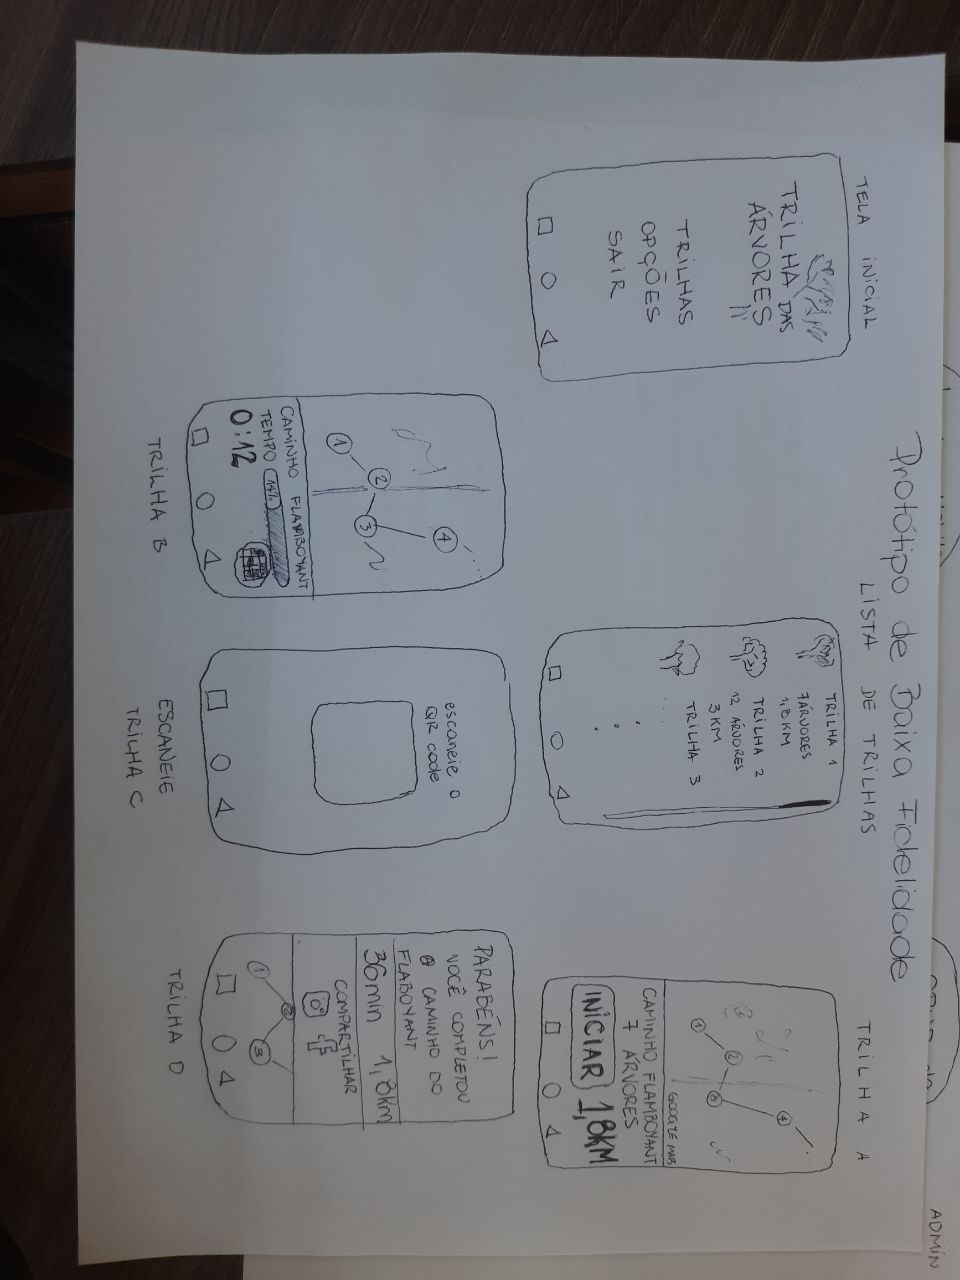 Protótipo de Baixa Fidelidade
TELA INICIAL
TRILHA DAS
ÁRVORES
TRILHAS
OPÇÕES
SAIR
LISTA DE TRILHAS
TRILHA 1
7 ÁRVORES
1,8KM
TRILHA 2
12 ÁRVORES
3 KM
TRILHA 3
TRILHA A
1
2
3
4
GOOGLE MAPS
CAMINHO FLAMBOYANT
7 ÁRVORES
INICIAR 1,8KM
1
2
3
4
CAMINHO FLAMBOYANT
TEMPO 14%
0:12
TRILHA B
escaneie o
QR code
ESCANEIE
TRILHA C
PARABÉNS!
VOCÊ COMPLETOU
O CAMINHO DO
FLABOYANT
36min 1,8km
COMPARTILHAR
1
2
3
TRILHA D
ADMIN